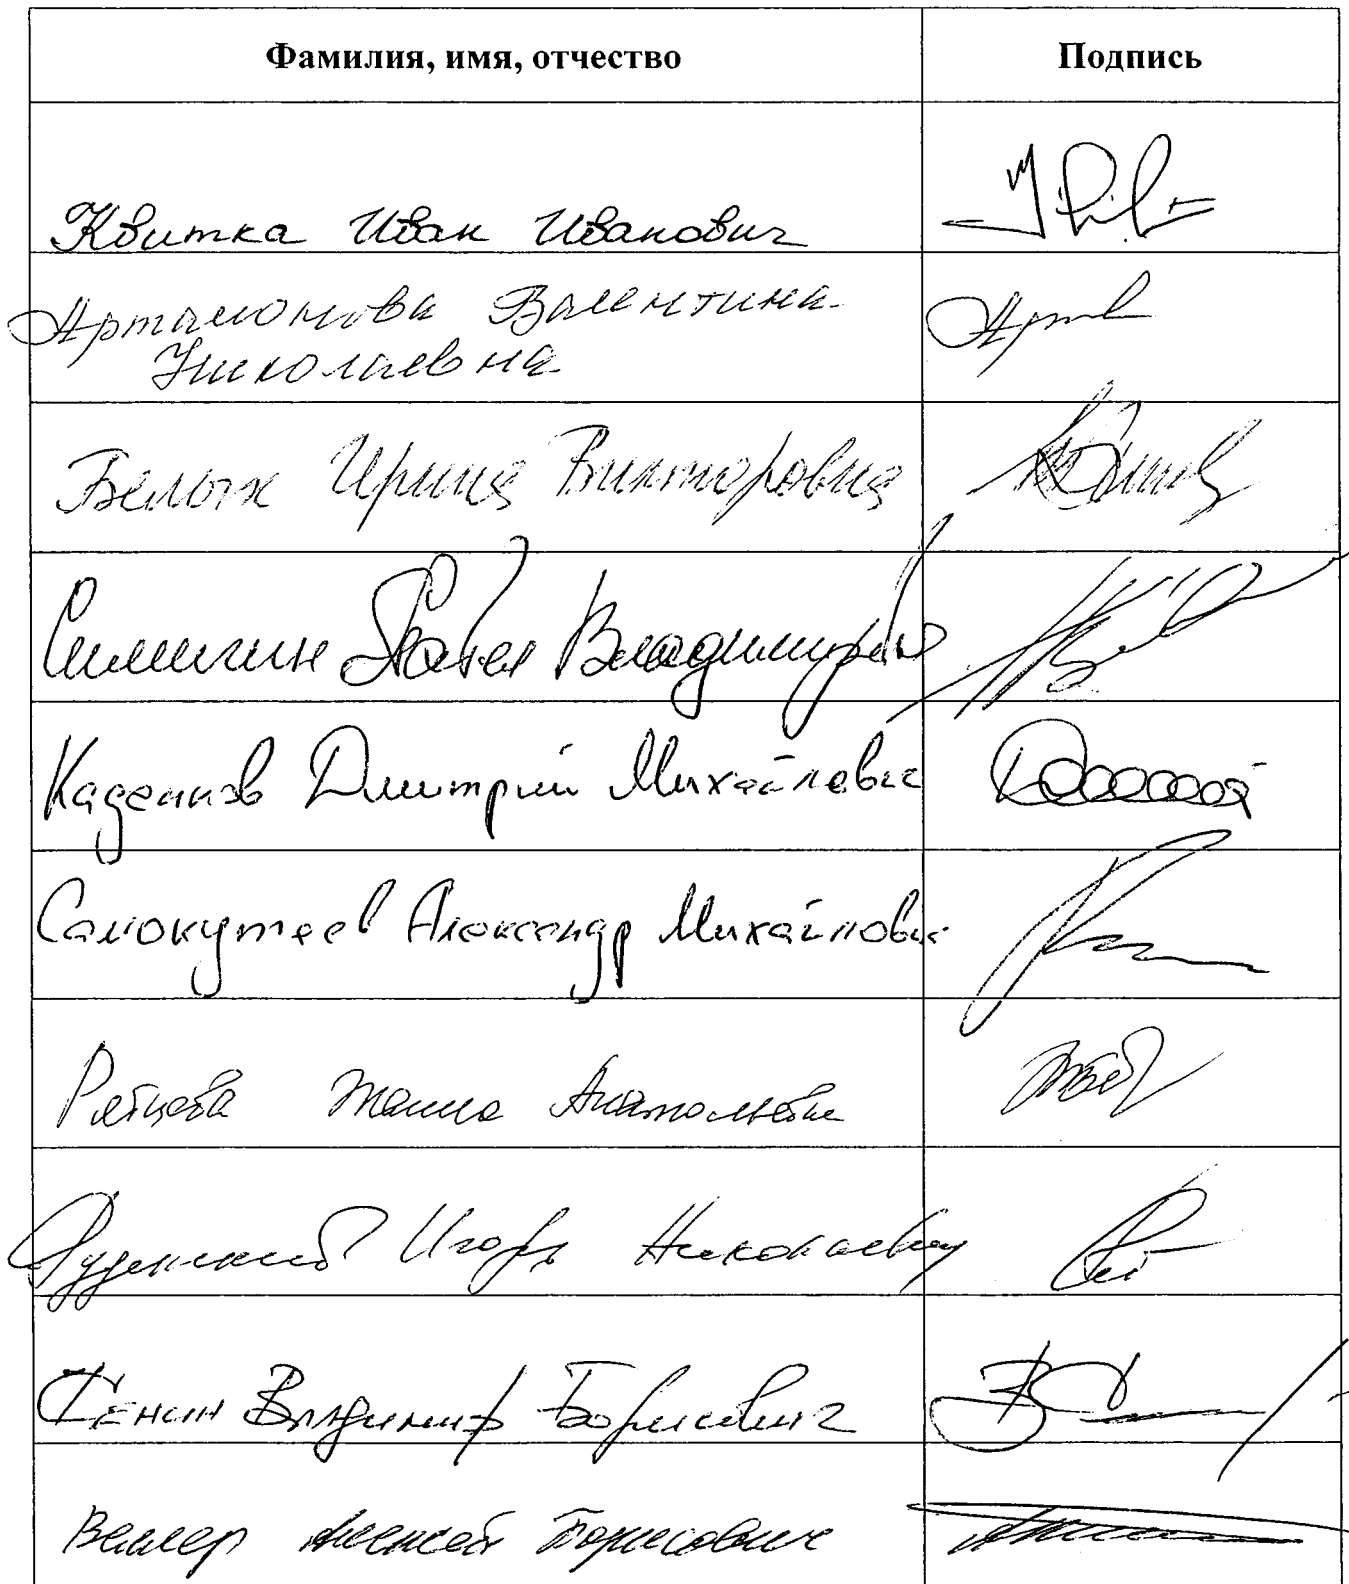 Фамилия, имя, отчество Подпись
Квитка Иван Иванович
Артамонова Валентина
Николаевна
Белых Ирина Викторовна
Симигин Павел Владимирович
Каденков Дмитрий Михайлович
Самокутяев Александр Михайлович
Рябцева Жанна Анатольевна
Руденский Игорь Николаевич
Сенин Владимир Борисович
Веллер Алексей Борисович